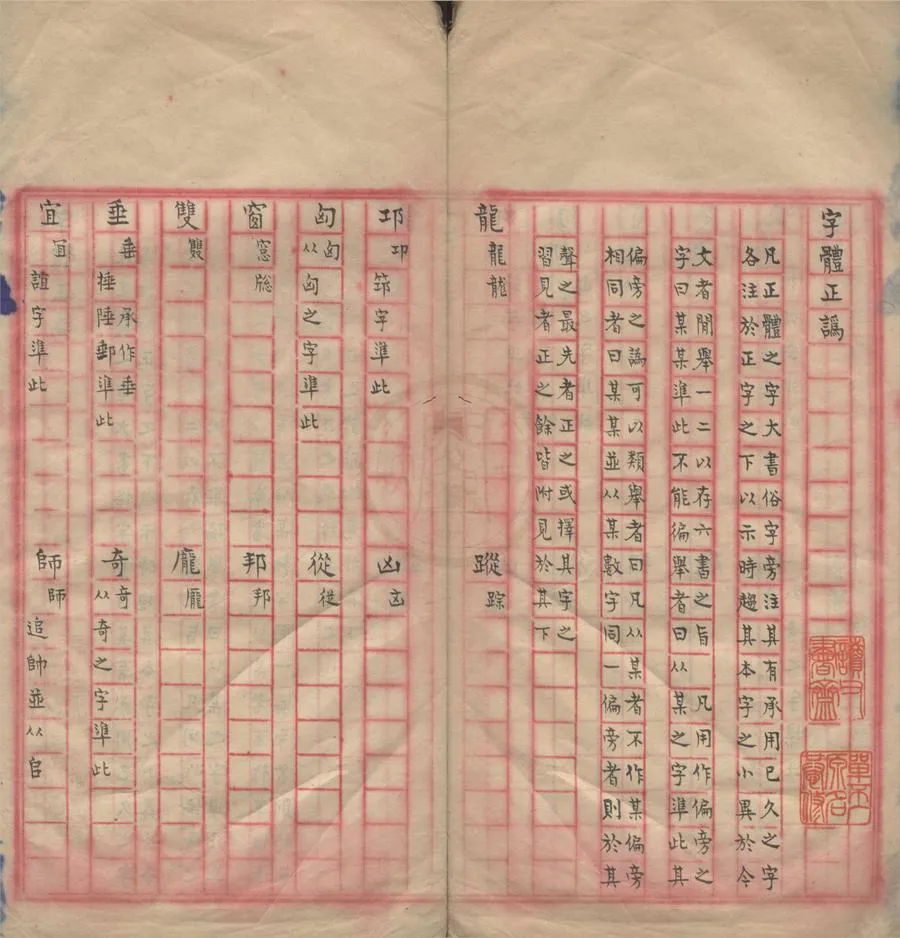 字體正譌
凡正體之字大書俗字旁注其有承用已久之字
各注於正字之下以示時趨其本字之小異於今
文者閒舉一二以存六書之旨 凡用作偏旁之
字曰某某準此不能徧舉者曰从某之字準此其
偏旁之譌可以類舉者曰凡从某者不作某偏旁
相同者曰某某並从某數字同一偏旁者則於其
聲之最先者正之或擇其字之
習見者正之餘皆附見於其下
龍 龍 龍 蹤 踪
邛 卭 筇字準此 凶 㐫
匈 匈 从匈之字準此 從 従
窗 窓 牎 邦 邦
雙 龐 龎
垂 埀 承作垂 捶陲郵準此 奇 竒 从奇之字準此
宜 冝 誼字準此 師 師 追帥並从𠂤